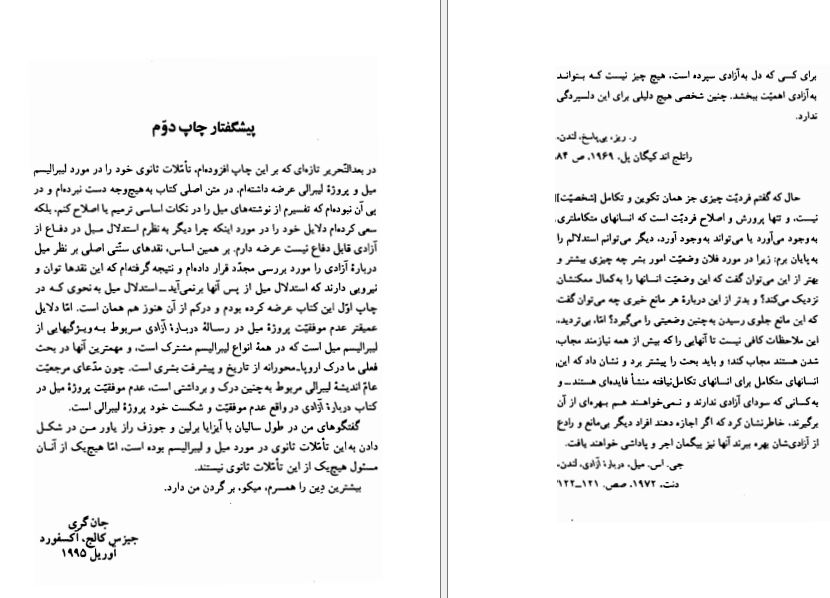 برای کسی که دل به‌آزادی سپرده است، هیچ چیز نیست که بتواند
به‌آزادی اهمیّت ببخشد. چنین شخصی هیچ دلیلی برای این دلسپردگی
ندارد.
ر. ریز، بی‌پاسخ، لندن،
راتلج اند کیگان پل، ۱۹۶۹، ص ۸۴.
حال که گفتم فردیّت چیزی جز همان تکوین و تکامل [شخصیّت]
نیست، و تنها پرورش و اصلاح فردیّت است که انسانهای متکاملتری
به‌وجود می‌آورد یا می‌تواند به‌وجود آورد، دیگر می‌توانم استدلالم را
به‌پایان برم: زیرا در مورد فلان وضعیّت امور بشر چه چیزی بیشتر و
بهتر از این می‌توان گفت که این وضعیّت انسانها را به‌کمال ممکنشان
نزدیک می‌کند؟ و بدتر از این دربارهٔ هر مانع خیری چه می‌توان گفت
که این مانع جلوی رسیدن به‌چنین وضعیتی را می‌گیرد؟ امّا، بی‌تردید،
این ملاحظات کافی نیست تا آنهایی را که بیش از همه نیازمند مجاب
شدن هستند مجاب کند؛ و باید بحث را پیشتر برد و نشان داد که این
انسانهای متکامل برای انسانهای تکامل‌نیافته منشأ فایده‌ای هستند ــ و
به‌کسانی که سودای آزادی ندارند و نمی‌خواهند هم بهره‌ای از آن
برگیرند، خاطرنشان کرد که اگر اجازه دهند افراد دیگر بی‌مانع و رادع
از آزادی‌شان بهره ببرند آنها نیز بیگمان اجر و پاداشی خواهند یافت.
جی. اس. میل، دربارهٔ آزادی، لندن،
دنت، ۱۹۷۲، صص. ۱۲۱ــ۱۲۲
پیشگفتار چاپ دوّم
در بعدالتّحریر تازه‌ای که بر این چاپ افزوده‌ام، تأمّلات ثانوی خود را در مورد لیبرالیسم
میل و پروژهٔ لیبرالی عرضه داشته‌ام. در متن اصلی کتاب به‌هیچ‌وجه دست نبرده‌ام و در
پی آن نبوده‌ام که تفسیرم از نوشته‌های میل را در نکات اساسی ترمیم یا اصلاح کنم، بلکه
سعی کرده‌ام دلایل خود را در مورد اینکه چرا دیگر به‌نظرم استدلال میل در دفاع از
آزادی قابل دفاع نیست عرضه دارم. بر همین اساس، نقدهای سنّتی اصلی بر نظر میل
دربارهٔ آزادی را مورد بررسی مجدّد قرار داده‌ام و نتیجه گرفته‌ام که این نقدها توان و
نیرویی دارند که استدلال میل از پس آنها برنمی‌آید ــ استدلال میل به‌نحوی که در
چاپ اوّل این کتاب عرضه کرده بودم و درکم از آن هنوز هم همان است. امّا دلایل
عمیقتر عدم موفقیّت پروژهٔ میل در رسالهٔ دربارهٔ آزادی مربوط به‌ویژگیهایی از
لیبرالیسم میل است که در همهٔ انواع لیبرالیسم مشترک است، و مهمترین آنها در بحث
فعلی ما درک اروپا‌ـ‌محورانه از تاریخ و پیشرفت بشری است. چون مدّعای مرجعیّت
عامّ اندیشهٔ لیبرالی مربوط به‌چنین درک و برداشتی است، عدم موفقیّت پروژهٔ میل در
کتاب دربارهٔ آزادی در واقع عدم موفقیّت و شکست خود پروژهٔ لیبرالی است.
گفتگوهای من در طول سالیان با آیزایا برلین و جوزف راز یاور من در شکل
دادن به‌این تأمّلات ثانوی در مورد میل و لیبرالیسم بوده است، امّا هیچ‌یک از آنان
مسئول هیچ‌یک از این تأمّلات ثانوی نیستند.
بیشترین دِین را همسرم، میکو، بر گردن من دارد.
جان گری
جیزس کالج، آکسفورد
آوریل ۱۹۹۵